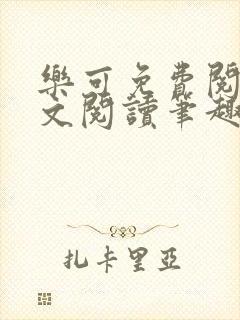 樂可免費閱
文閱讀筆趣
扎卡里亞